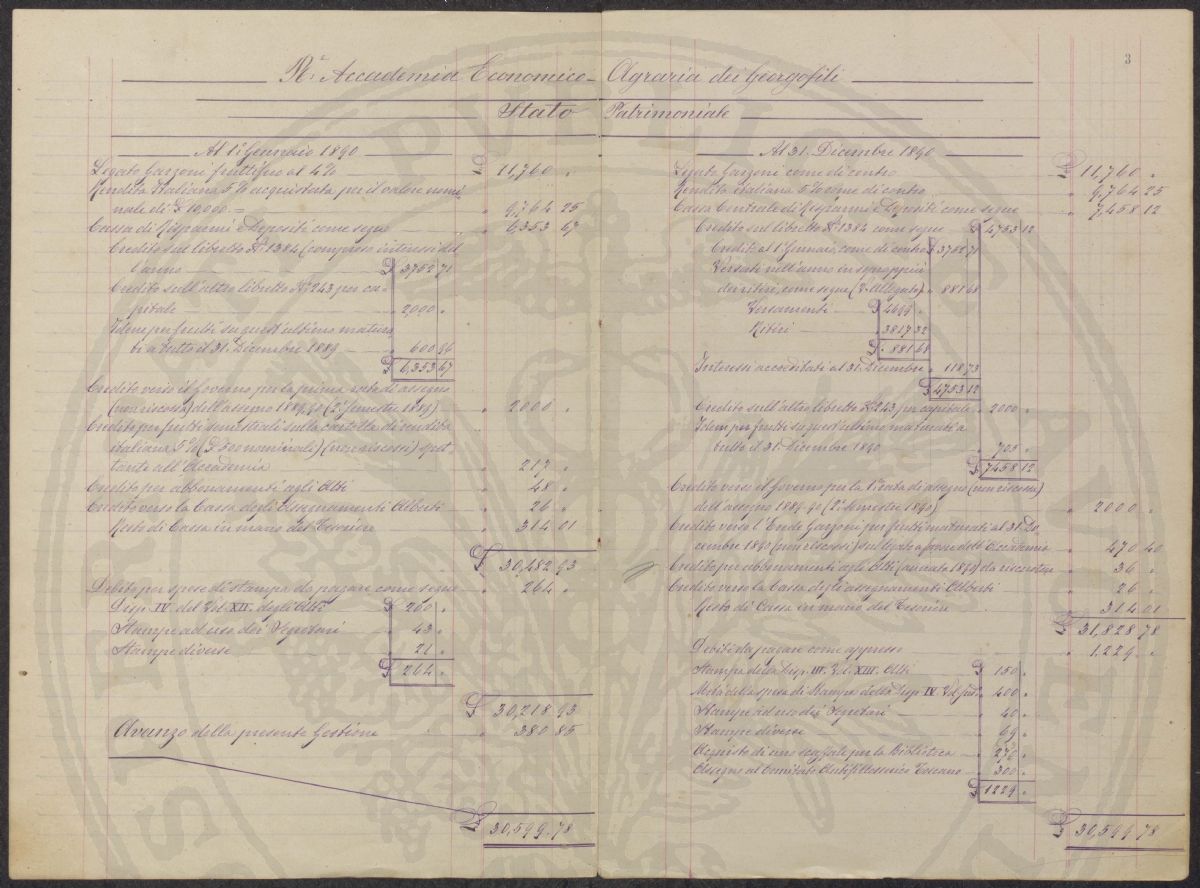 3
R.ª Accademia Economico-Agraria dei Georgofili
Stato Patrimoniale
Al 1º Gennaio 1890
Legato Garzoni fruttifero al 4% £ 11,760 "
Rendita Italiana 5% acquistata per il valore nomi-
nale di £ 10,000 = " 9,764 25
Cassa di Risparmi e Depositi come segue " 6353 67
Credito sul libretto Nº 1384 (compresi i interessi del-
l'anno £ 3752 71
Credito sull'altro libretto Nº 243 per ca-
pitale " 2000 "
Idem per frutti su quest'ultimo matura-
ti a tutto il 31. Dicembre 1889 " 600 96
£ 6,353 67
Credito verso il Governo per la prima rata di assegno
(non riscossa) dell'assegno 1889.90 (2º Semestre 1889) " 2000 "
Credito per frutti semestrali sulla cartella di rendita
italiana 5% (£ 500 nominale) (non riscossi) spet-
tante all'Accademia " 217 "
Credito per abbonamenti agli Atti " 48 "
Credito verso la Cassa degli Assegnamenti Alberti " 26 "
Resto di Cassa in mano del Tesoriere " 314 01
£ 30,482 93
Debito per spese di stampa da pagare come segue " 264 "
Disp. IV del Vol. XII. degli Atti £ 200 "
Stampe ad uso dei Segretari " 43 "
Stampe diverse " 21 "
£ 264 "
£ 30,218 93
Avanzo della presente Gestione " 380 85
£ 30,599.78
Al 31. Dicembre 1890
Legato Garzoni come di contro £ 11,760 "
Rendita italiana 5% come di contro " 9,764 25
Cassa Centrale di Risparmi e Depositi come segue " 7,458 12
Credito sul libretto Nº 1384 come segue £ 4753 12
Credito al 1 Gennaio, come di contro £ 3752 71
Versati nell'anno in
dei ritiri, come segue (V. Allegato) " 881 68
Versamenti £ 4699 "
Ritiri " 3817 32
£ 881 68
Interessi accreditati al 31. Dicembre " 118 73
£ 4753 12
Credito sull'altro libretto Nº 243 per capitale " 2000 "
Idem per frutti su quest'ultimo maturati a
tutto il 31. Dicembre 1890 " 705 "
£ 7458 12
Credito verso il Governo per la 1ª rata di assegno (non riscossa)
dell'assegno 1889.90 (2º Semestre 1890) " 2000 "
Credito verso l'Ente Garzoni per frutti maturati al 31. Di-
cembre 1890 (non riscossi) sul legato a favore dell'Accademia " 470 40
Credito per abbonamenti agli Atti (annata 1890) da riscuotere " 36 "
Credito verso la Cassa degli assegnamenti Alberti " 26 "
Resto di Cassa in mano del Tesoriere " 314 01
£ 31,828 78
Debiti da pagare come appresso " 1,229 "
Stampa della Disp. III. Vol. XIII. Atti £ 150 "
Metà della spesa di stampa della Disp. IV Vol. " 400 "
Stampe ad uso dei Segretari " 40 "
Stampe diverse " 69 "
Acquisto di uno scaffale per la Biblioteca " 270 "
Assegno al Comitato Antifillosserico Toscano " 300 "
£ 1229 "
£ 30,599 78